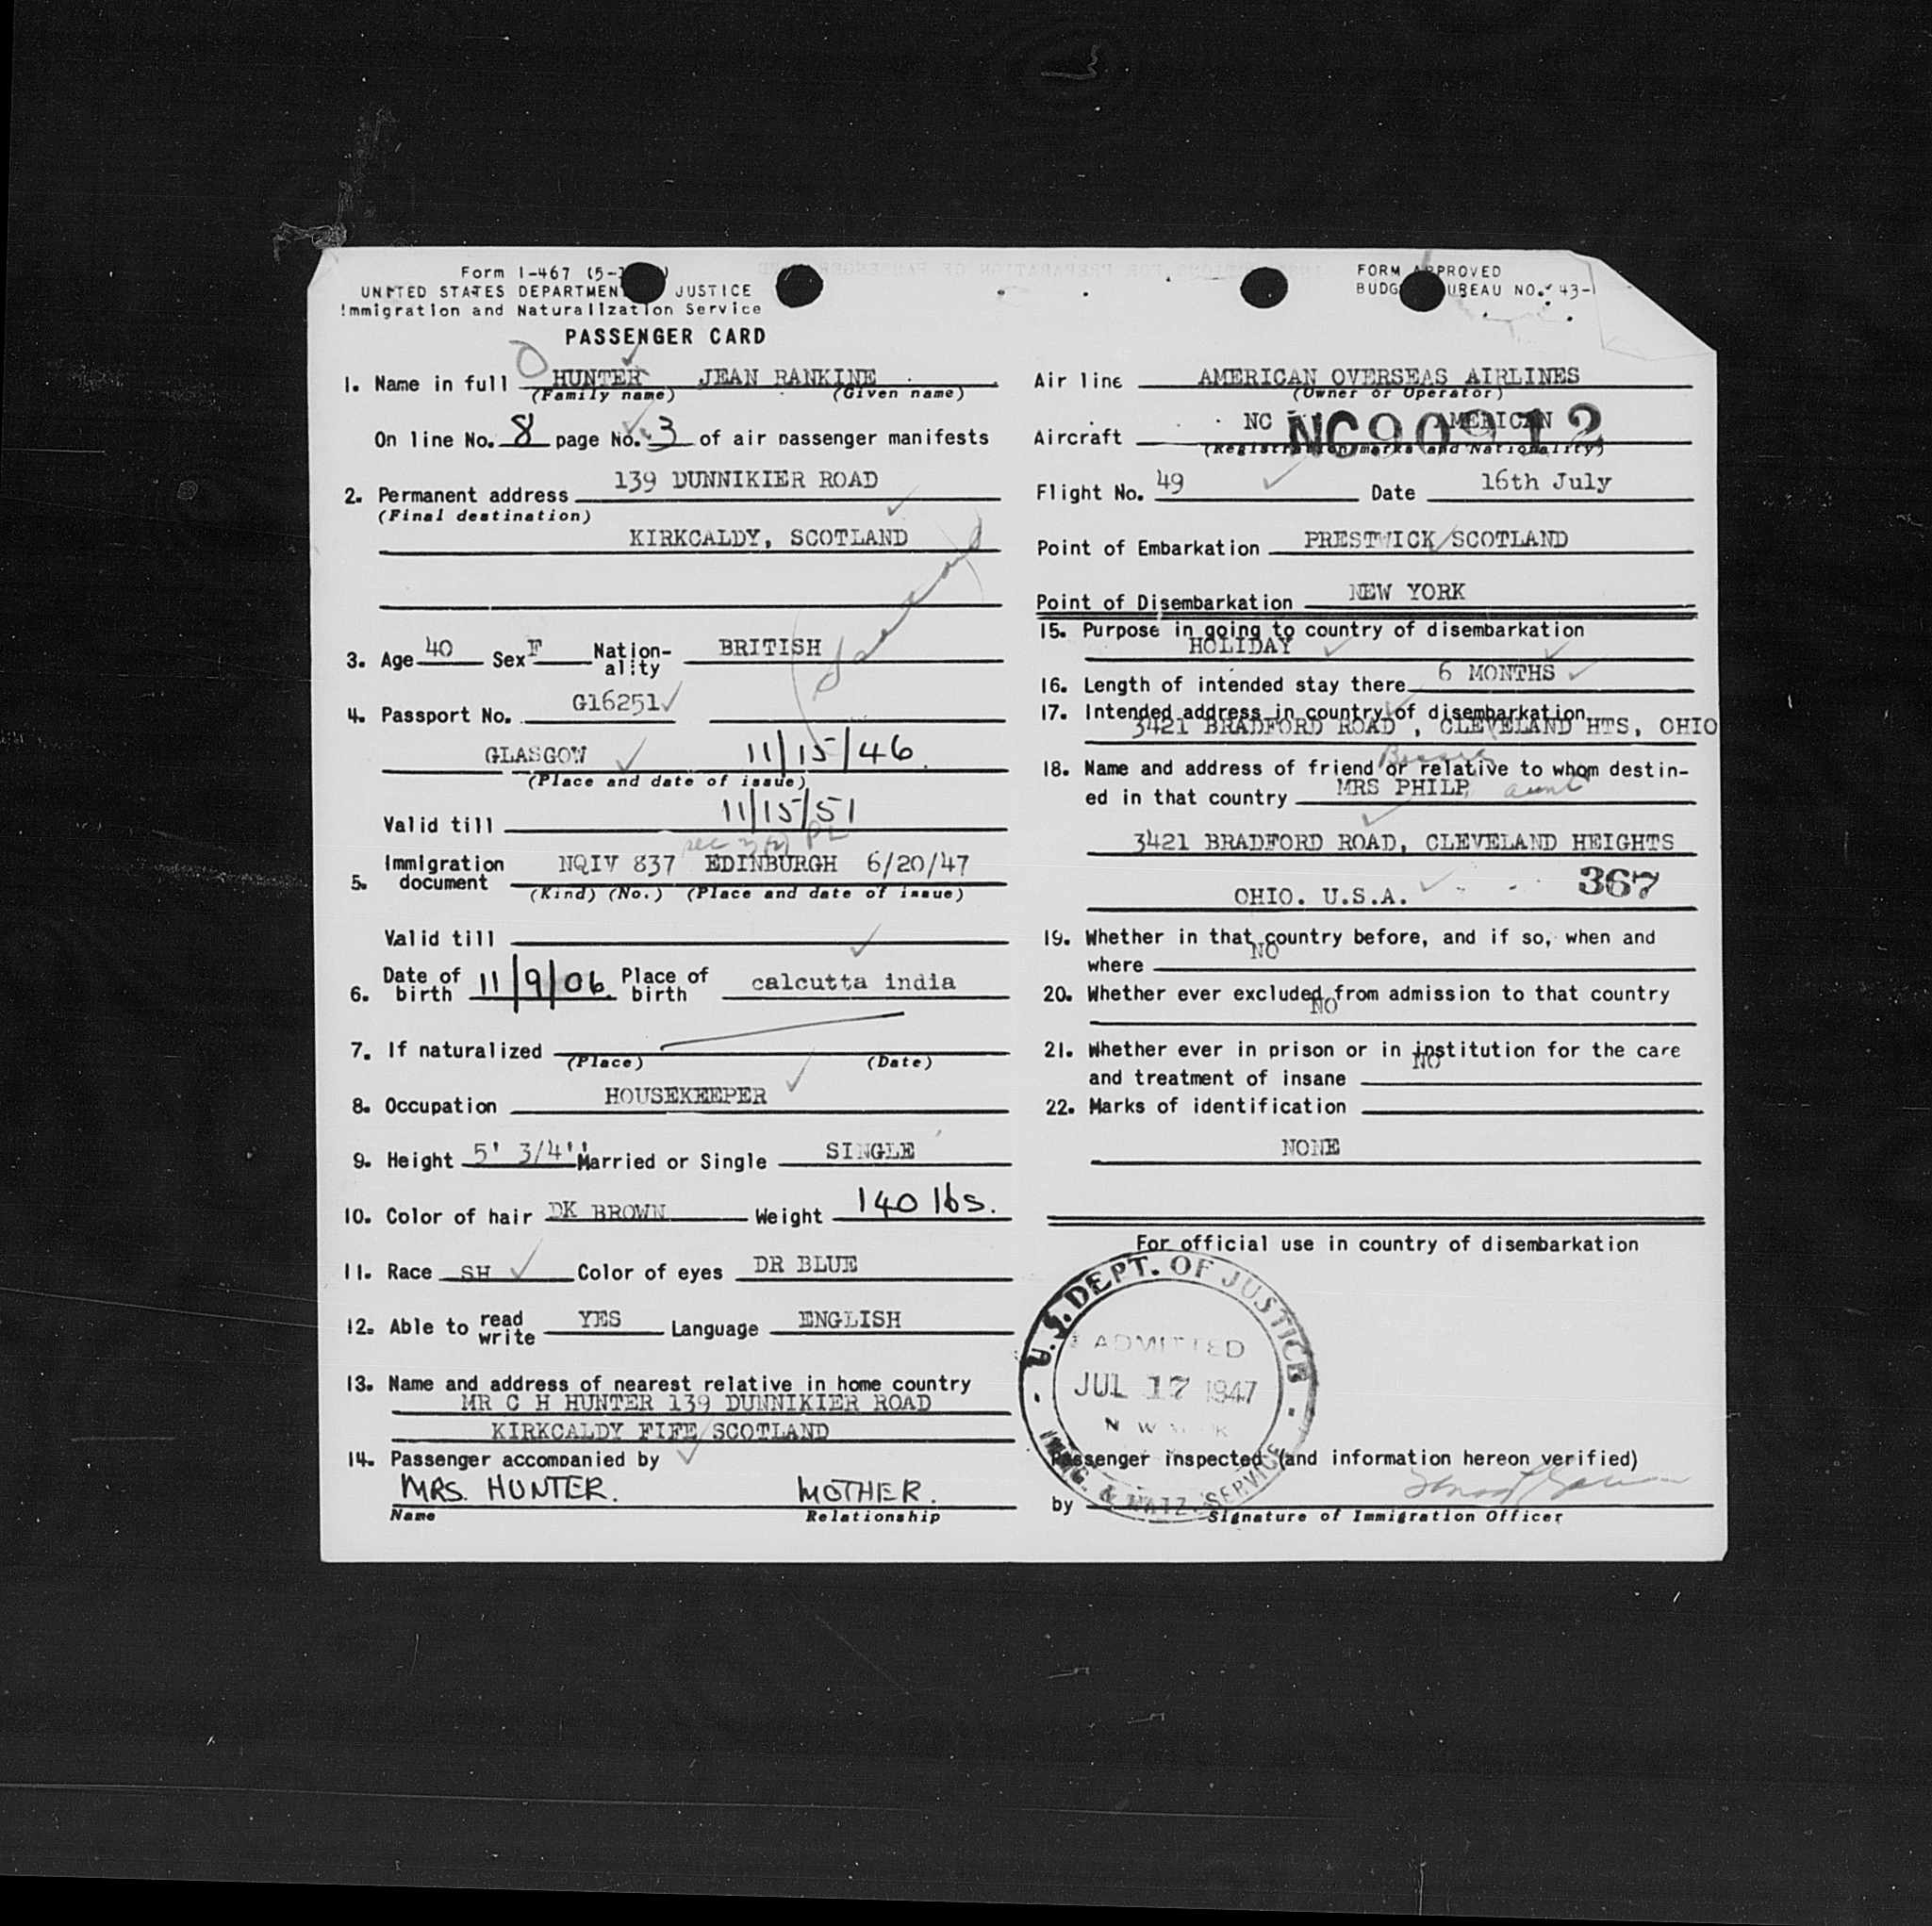 Form I-467 (5-
UNITED STATES DEPARTMEN JUSTICE
Immigration and Naturalization Service
PASSENGER CARD
1. Name in full HUNTER JEAN RANKINE
(Family name) (Given name)
On line No. 8 page No. 3 of air passenger manifests
2. Permanent address 139 DUNNIKIER ROAD
(Final destination)
KIRKCALDY, SCOTLAND
3. Age 40 Sex F Nation-ality BRITISH
4. Passport No. G16251
GLASGOW 11/15/46.
(Place and date of issue)
Valid till 11/15/51
5. Immigration document NQIV 837 EDINBURGH 6/20/47
(Kind) (No.) (Place and date of issue)
Valid till
6. Date of birth 11/9/06. Place of birth calcutta india
7. If naturalized
(Place) (Date)
8. Occupation HOUSEKEEPER
9. Height 5' 3/4'' Married or Single SINGLE
10. Color of hair DK BROWN Weight 140 lbs.
11. Race SH Color of eyes DR BLUE
12. Able to read write YES Language ENGLISH
13. Name and address of nearest relative in home country
MR C H HUNTER 139 DUNNIKIER ROAD
KIRKCALDY FIFE SCOTLAND
14. Passenger accompanied by
MRS. HUNTER. MOTHER.
Name Relationship
FORM APPROVED
BUDG UREAU NO. 43-
Air line AMERICAN OVERSEAS AIRLINES
(Owner or Operator)
Aircraft NC NC90912 AMERICAN
(Registration marks and Nationality)
Flight No. 49 Date 16th July
Point of Embarkation PRESTWICK SCOTLAND
Point of Disembarkation NEW YORK
15. Purpose in going to country of disembarkation
HOLIDAY
16. Length of intended stay there 6 MONTHS
17. Intended address in country of disembarkation
3421 BRADFORD ROAD , CLEVELAND HTS, OHIO
18. Name and address of friend or relative to whom destin-
ed in that country MRS PHILP, aunt
3421 BRADFORD ROAD, CLEVELAND HEIGHTS
367
OHIO. U.S.A.
19. Whether in that country before, and if so, when and
where NO
20. Whether ever excluded from admission to that country
NO
21. Whether ever in prison or in institution for the care
and treatment of insane NO
22. Marks of identification
NONE
For official use in country of disembarkation
U.S. DEPT. OF JUSTICE
ADMITTED
JUL 17 1947
IMMG. & NATZ. SERVICE
Passenger inspected (and information hereon verified)
by
Signature of Immigration Officer